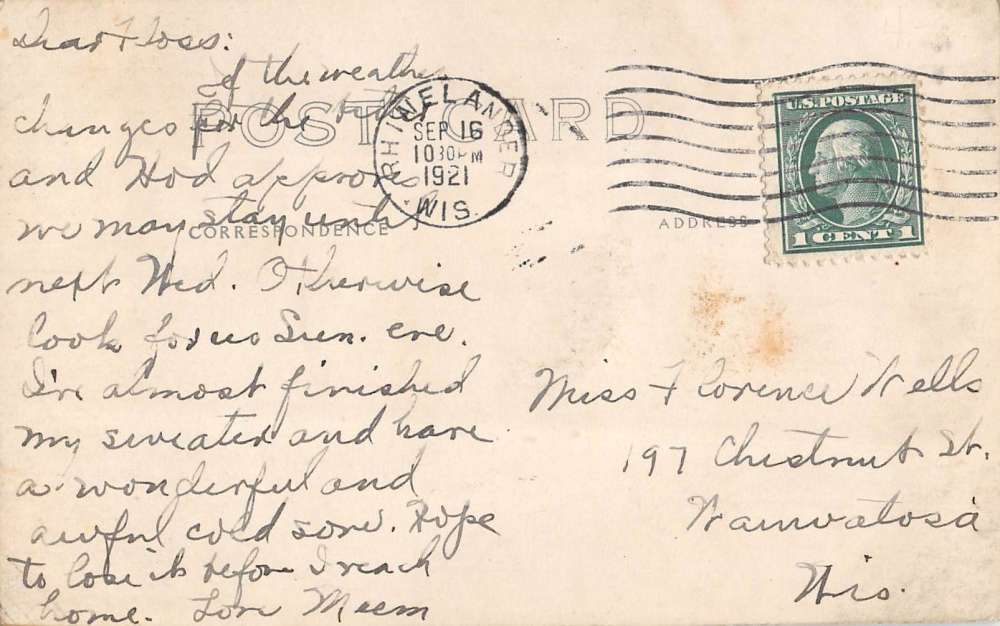 Dear Floss:
If the weather
changes for the better
and Hod approves
we may stay until
next Wed. Otherwise
look for us Sun. eve.
I've almost finished
my sweater and have
a wonderful and
awful cold sore. Hope
to lose it before I reach
home. Love Meem
POST CARD
CORRESPONDENCE
ADDRESS
RHINELANDER
SEP 16
10 30 PM
1921
WIS.
U.S. POSTAGE
1 CENT 1
Miss Florence Wells
197 Chestnut St.
Wauwatosa
Wis.